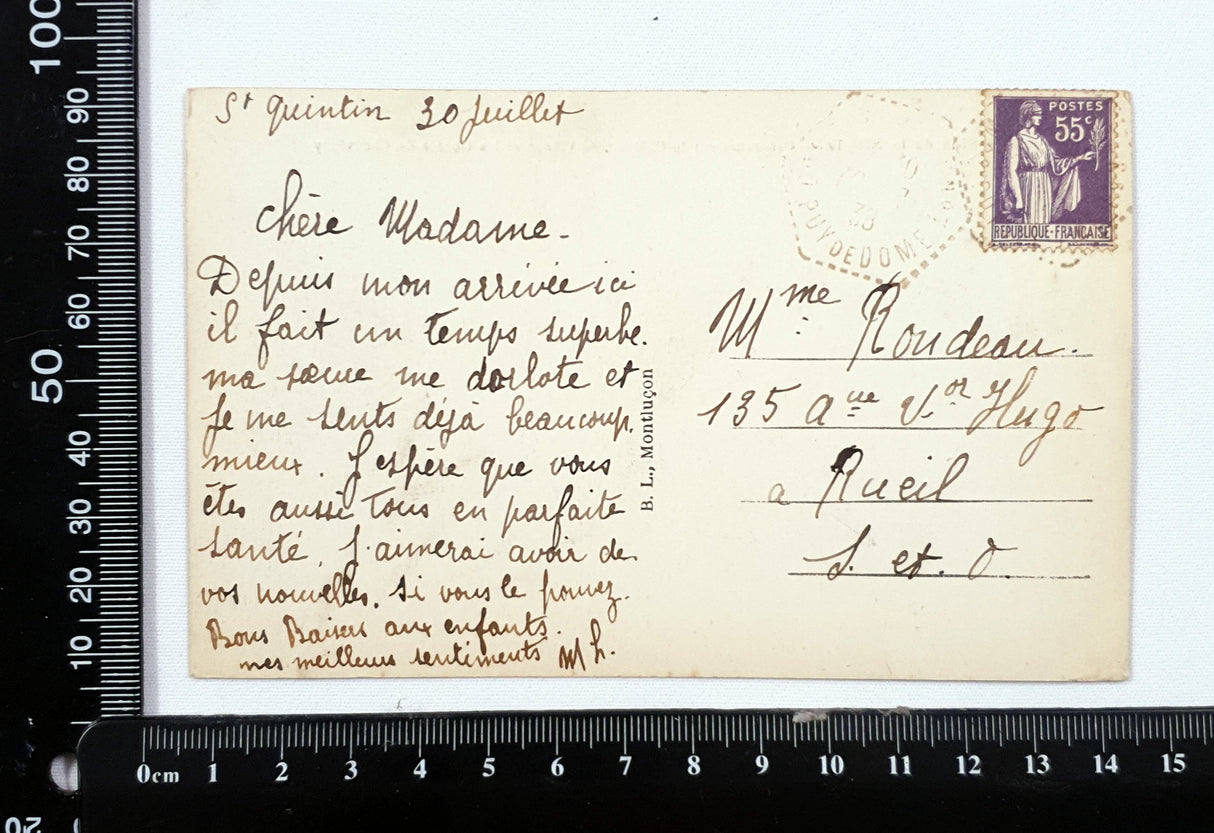 St Quintin 30 Juillet
Chère Madame -
Depuis mon arrivée ici
il fait un temps superbe.
ma sœur me dorlote et
je me sents déjà beaucoup.
mieux. J'espère que vous
êtes aussi tous en parfaite
santé, J'aimerai avoir de
vos nouvelles. si vous le pouvez.
Bons Baisers aux enfants.
mes meilleurs sentiments M L.
B. L., Montluçon
POSTES
55c
REPUBLIQUE-FRANÇAISE
PUY DE DOME
Mme Rondeau.
135 Aue Vor Hugo
a Rueil
S. et. O.
100
90
80
70
60
50
40
30
20
10
20
0cm 1 2 3 4 5 6 7 8 9 10 11 12 13 14 15